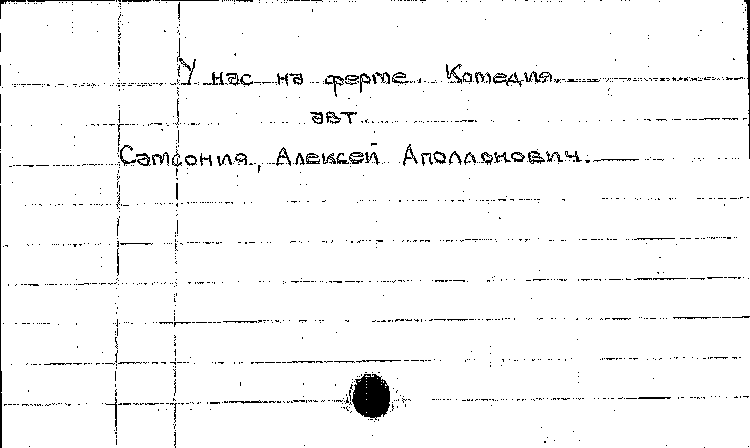 У нас на ферме. Комедия.
авт.
Самсония, Алексей Аполлонович.